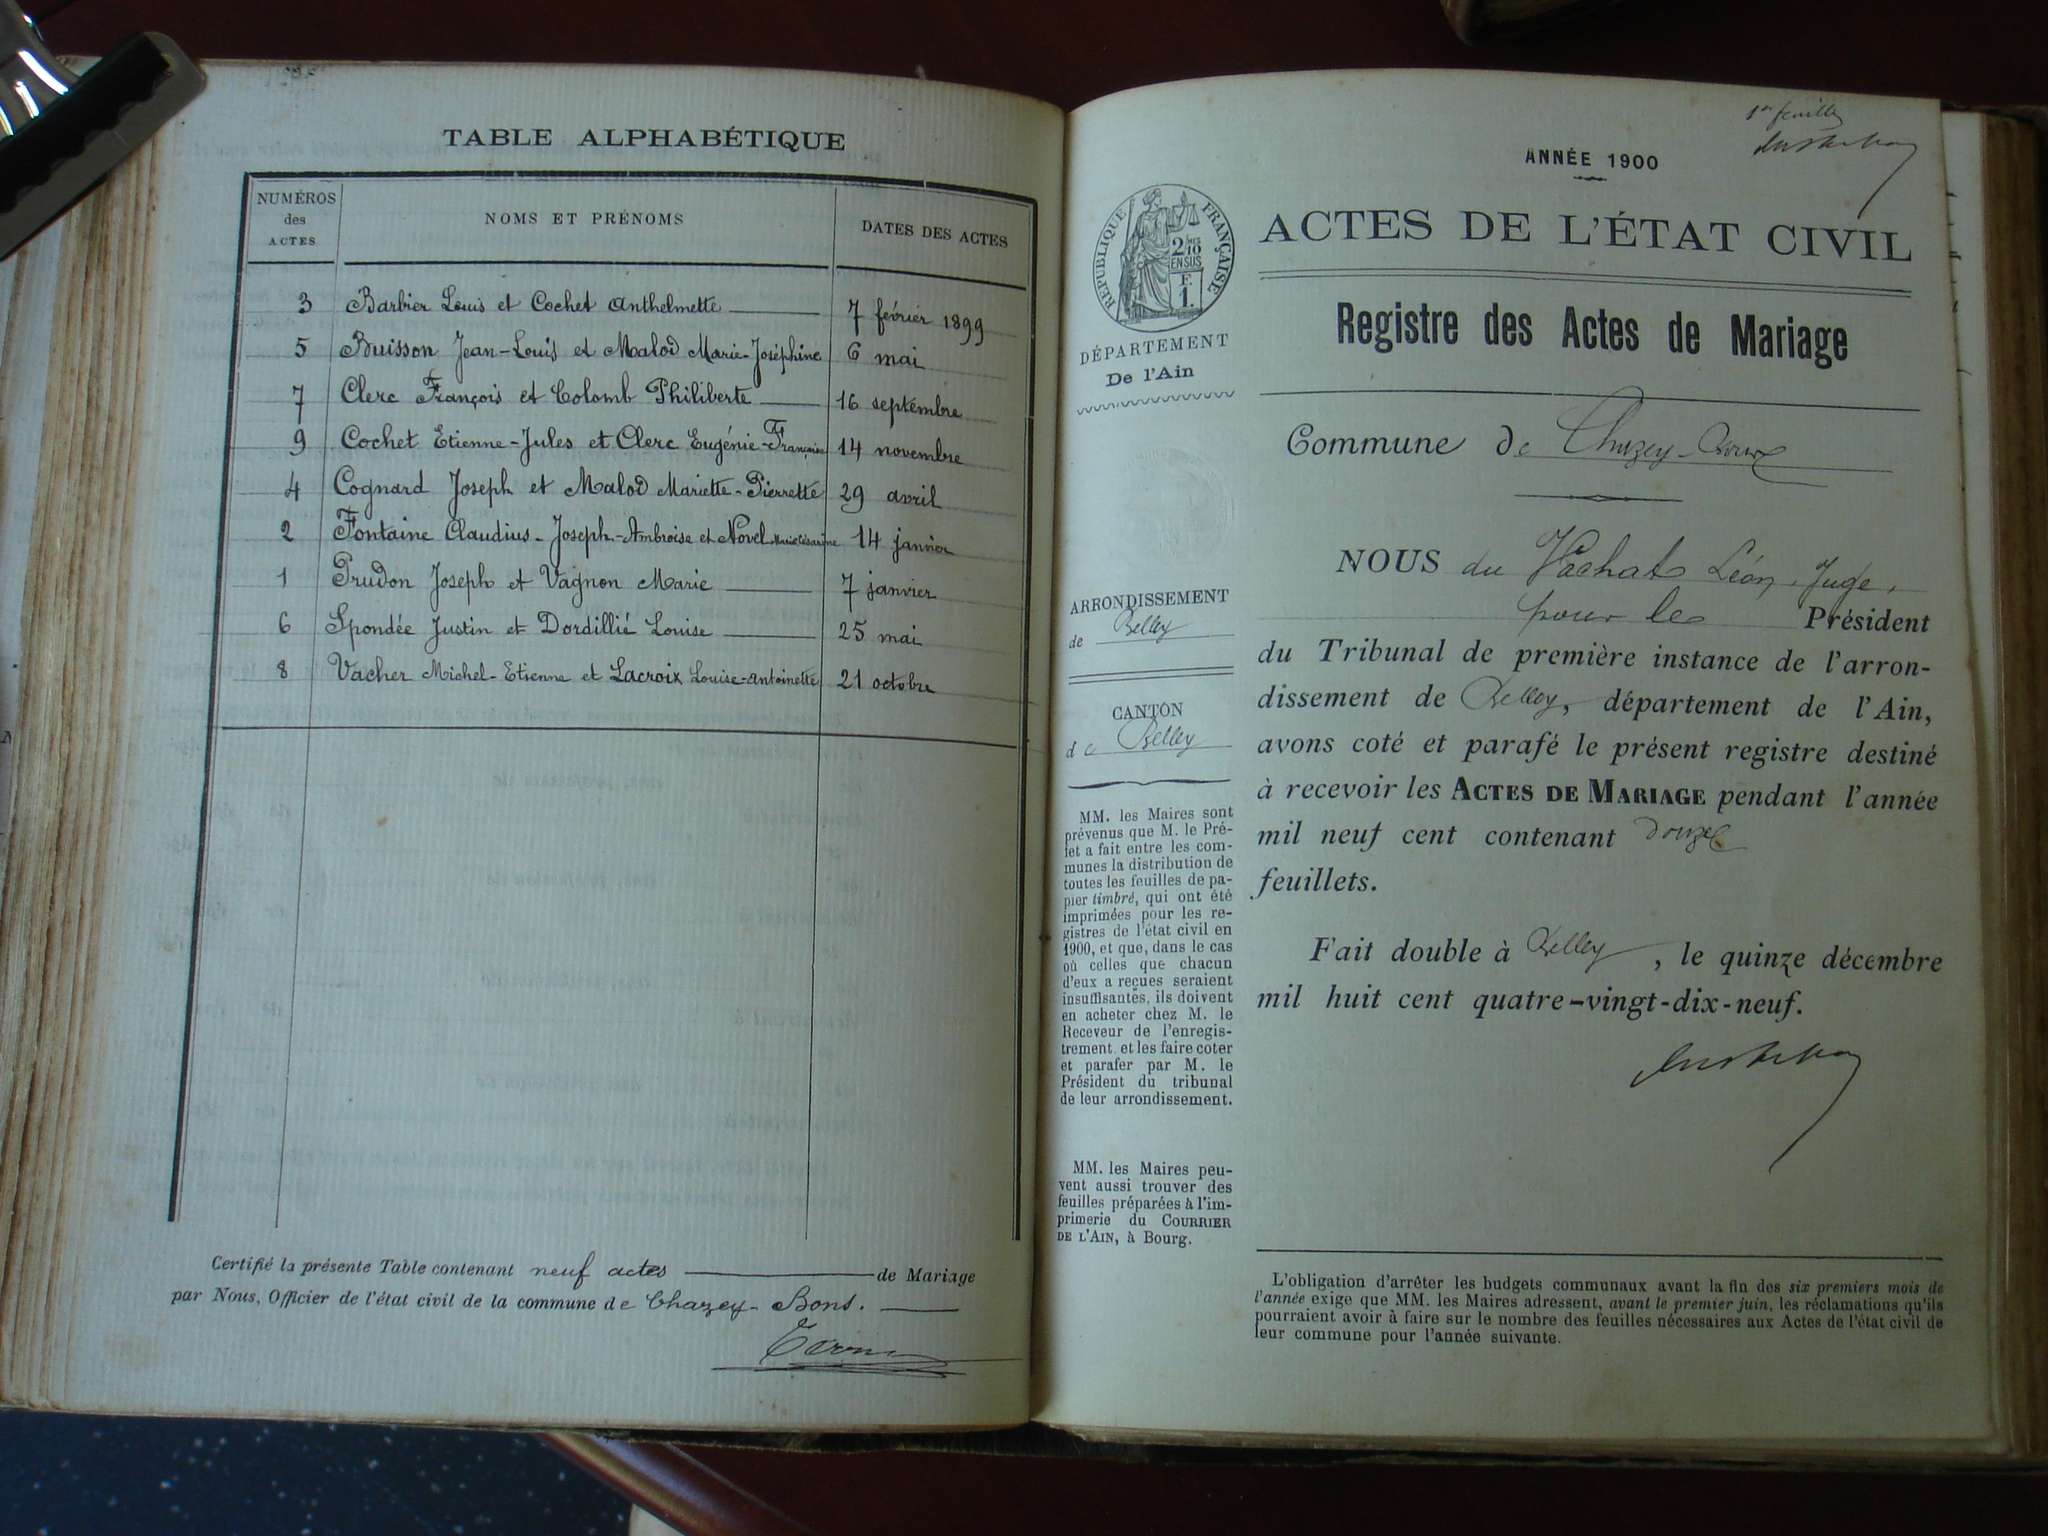 TABLE ALPHABÉTIQUE
NUMÉROS des ACTES
NOMS ET PRÉNOMS
DATES DES ACTES
3 Barbier Louis et Cochet Anthelmette 7 février 1899
5 Buisson Jean-Louis et Malod Marie-Joséphine 6 mai
7 Clerc François et Colomb Philiberte 16 septembre
9 Cochet Etienne-Jules et Clerc Eugénie-Françoise 14 novembre
4 Cognard Joseph et Malod Mariette-Pierrette 29 avril
2 Fontaine Claudius-Joseph-Ambroise et Novel Marie Césarine 14 janvier
1 Prudon Joseph et Vagnon Marie 7 janvier
6 Spondée Justin et Dordillié Louise 25 mai
8 Vacher Michel-Etienne et Lacroix Louise-Antoinette 21 octobre
Certifié la présente Table contenant neuf actes de Mariage
par Nous, Officier de l'état civil de la commune de Chazey-Bons.
1er feuille
ANNÉE 1900
RÉPUBLIQUE FRANÇAISE
2/10
EN SUS
F.
1.
ACTES DE L'ÉTAT CIVIL
Registre des Actes de Mariage
DÉPARTEMENT
De l'Ain
Commune de Chazey-Bons
NOUS du Vachat Léon, Juge,
pour le Président
du Tribunal de première instance de l'arron-
dissement de Belley, département de l'Ain,
avons coté et parafé le présent registre destiné
à recevoir les ACTES DE MARIAGE pendant l'année
mil neuf cent contenant douze
feuillets.
Fait double à Belley, le quinze décembre
mil huit cent quatre-vingt-dix-neuf.
ARRONDISSEMENT
de Belley
CANTON
de Belley
MM. les Maires sont
prévenus que M. le Pré-
fet a fait entre les com-
munes la distribution de
toutes les feuilles de pa-
pier timbré, qui ont été
imprimées pour les re-
gistres de l'état civil en
1900, et que, dans le cas
où celles que chacun
d'eux a reçues seraient
insuffisantes, ils doivent
en acheter chez M. le
Receveur de l'enregis-
trement, et les faire coter
et parafer par M. le
Président du tribunal
de leur arrondissement.
MM. les Maires peu-
vent aussi trouver des
feuilles préparées à l'im-
primerie du COURRIER
DE L'AIN, à Bourg.
L'obligation d'arrêter les budgets communaux avant la fin des six premiers mois de
l'année exige que MM. les Maires adressent, avant le premier juin, les réclamations qu'ils
pourraient avoir à faire sur le nombre des feuilles nécessaires aux Actes de l'état civil de
leur commune pour l'année suivante.